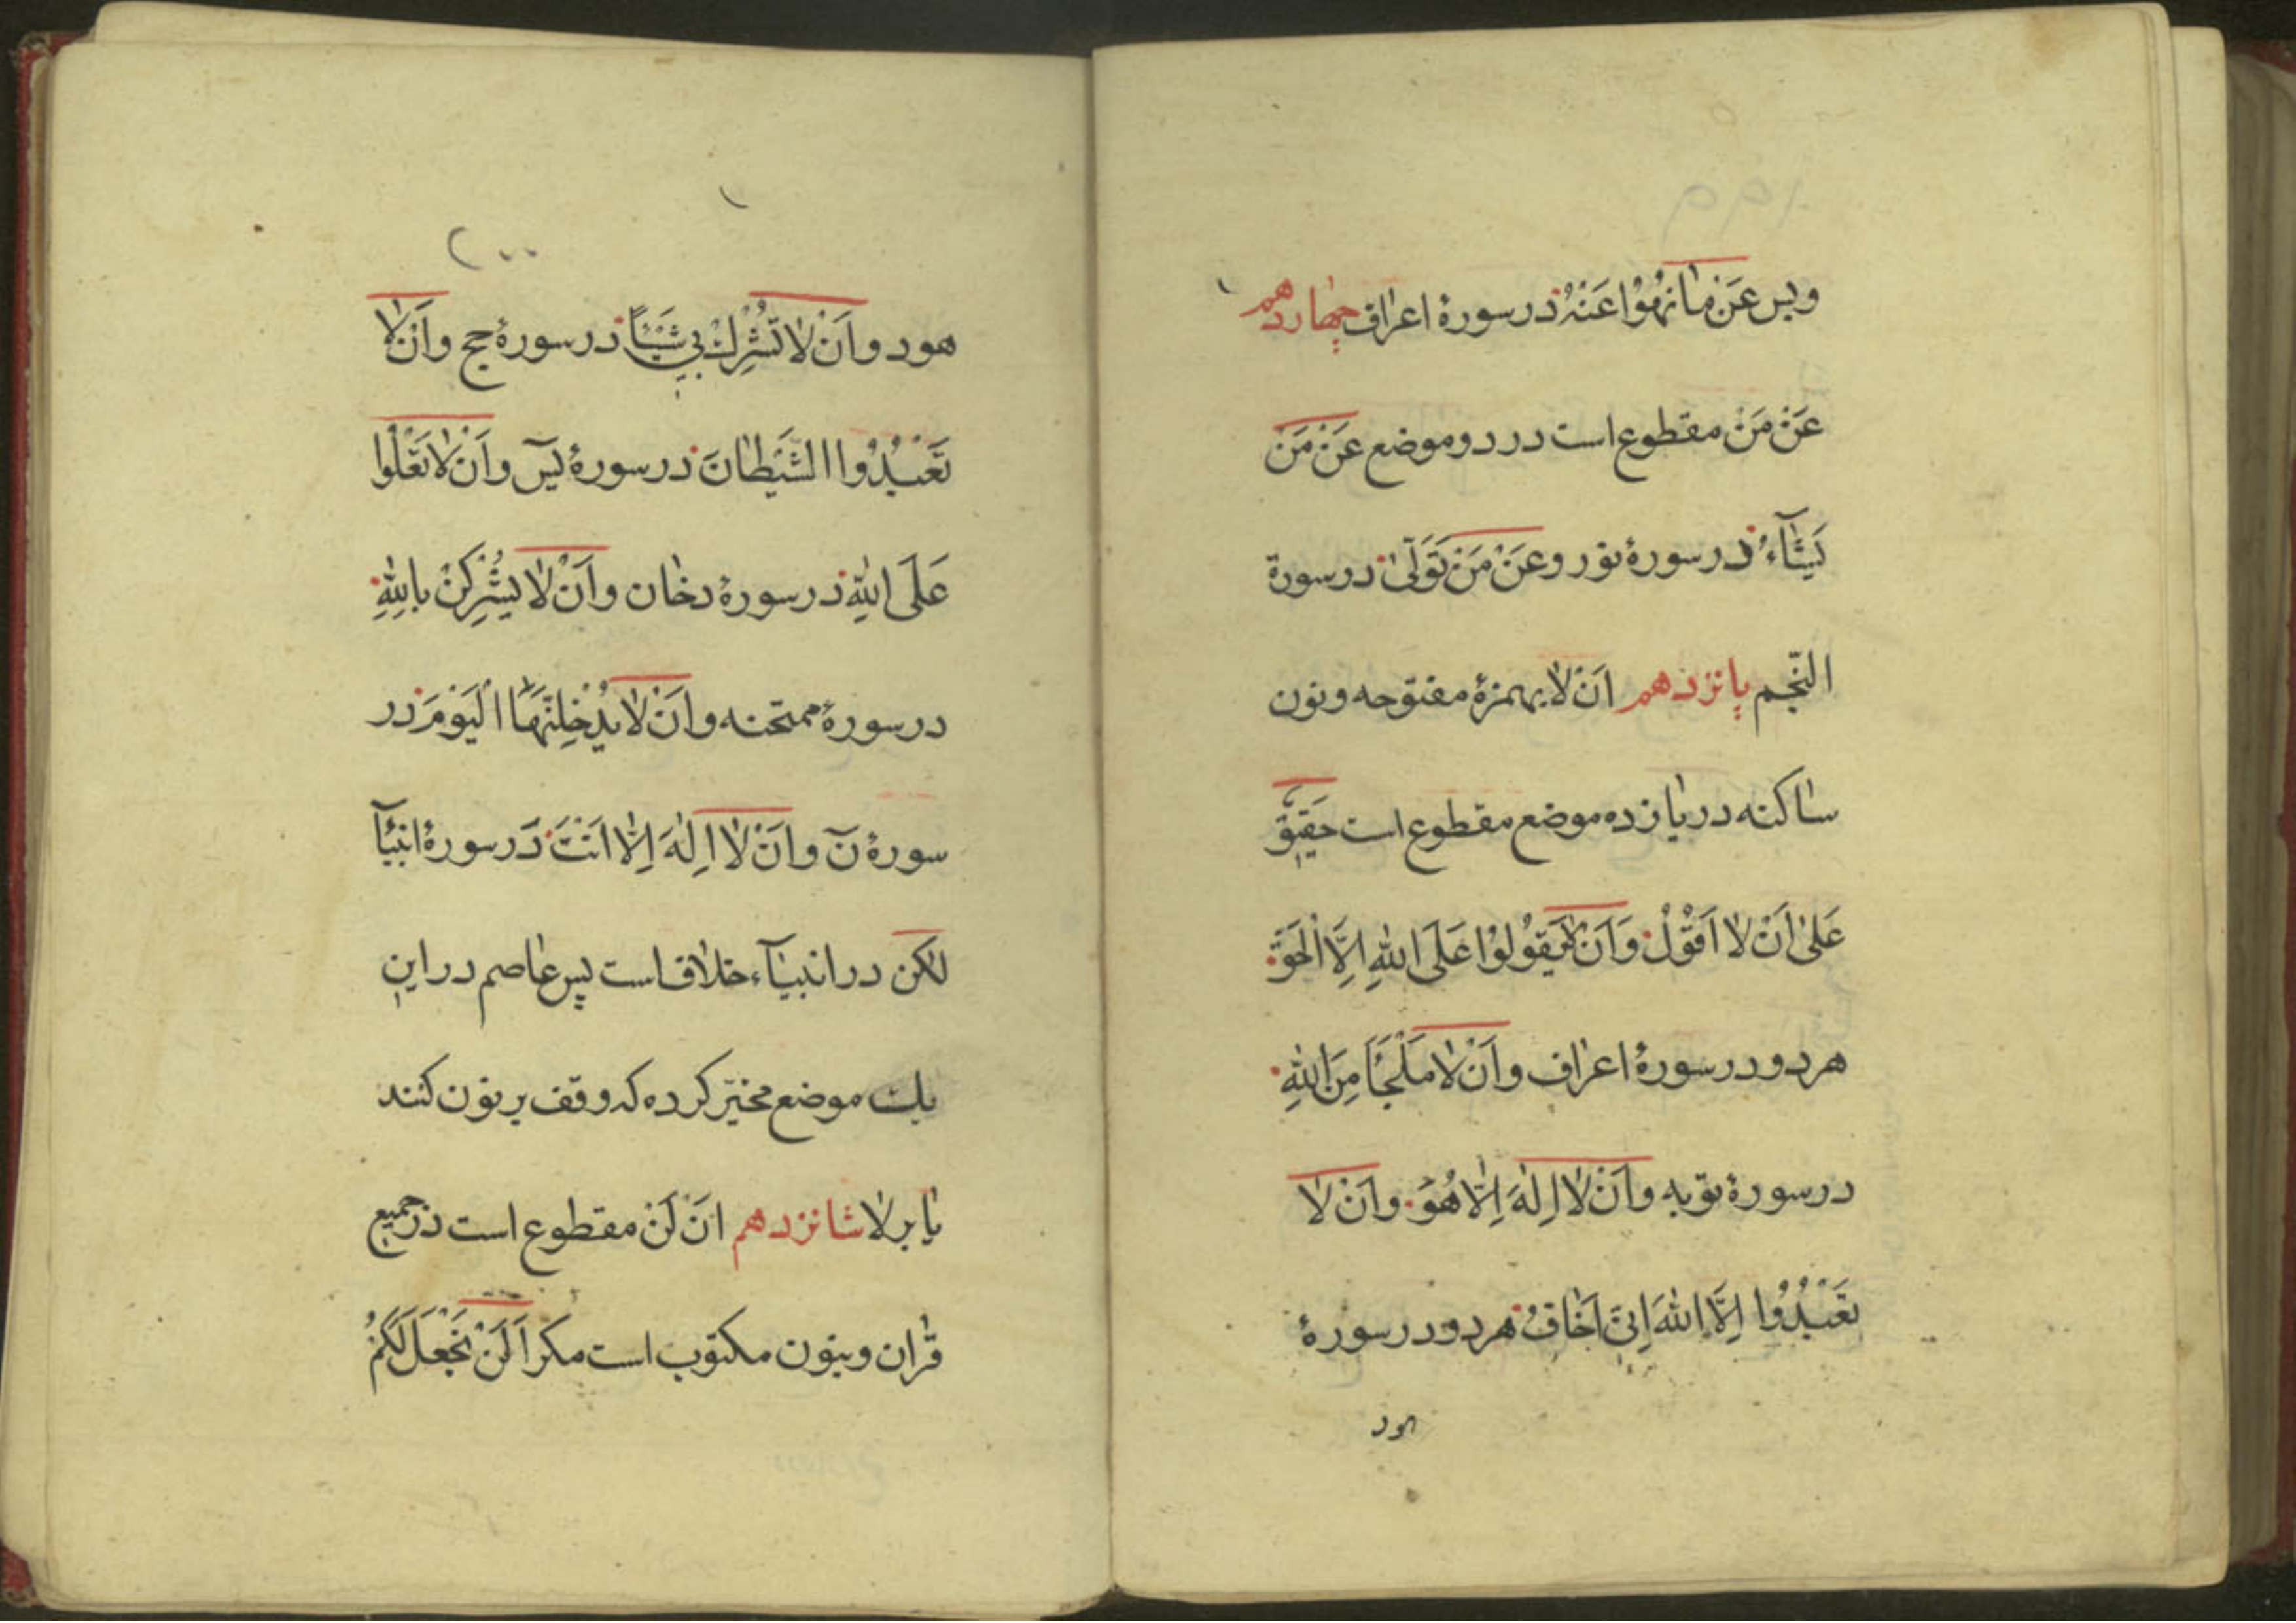 وبس عَنْ مٰا نُهُوْا عَنْهُ در سورهٔ اعراف چهاردهم
عَنْ مَنْ مقطوع است در دو موضع عَنْ مَنْ
يَشٰٓاءُ در سورهٔ نور وعَنْ مَنْ تَوَلّىٰ در سورة
النّجم پانزدهم اَنْ لٰا بهمزهٔ مفتوحه ونون
ساكنه در يازده موضع مقطوع است حَقِيقٌ
عَلىٰ اَنْ لٰا اَقُوْلَ وَاَنْ لٰا يَقُوْلُوْا عَلَى اللهِ اِلَّا الْحَقَّ
هر دو در سورهٔ اعراف واَنْ لٰا مَلْجَأَ مِنَ اللهِ
در سورهٔ توبه واَنْ لٰا اِلٰهَ اِلّٰا هُوَ واَنْ لٰا
تَعْبُدُوا اِلَّا اللهَ اِنّىٓ اَخٰافُ هر دو در سورهٔ
هود
٢٠٠
هود واَنْ لٰا تُشْرِكْ بي شَيْئًا در سورهٔ حج واَنْ لٰا
تَعْبُدُوا الشَّيْطٰانَ در سورهٔ يٓس واَنْ لٰا تَعْلُوا
عَلَى اللهِ در سورهٔ دخان واَنْ لٰا يُشْرِكْنَ بِاللهِ
در سورهٔ ممتحنه واَنْ لٰا يَدْخُلَنَّهَا الْيَوْمَ در
سورهٔ نٓ واَنْ لٰا اِلٰهَ اِلّٰا اَنْتَ در سورهٔ انبيآ
لٰكن در انبيآء خلاف است پس عاصم در اين
يك موضع مخيّر كرده كه وقف بر نون كنند
يا بر لا شانزدهم اَنْ لَنْ مقطوع است در جميع
قرٰان وبنون مكتوب است مكر اَلَنْ نَجْعَلَ لَكُمْ